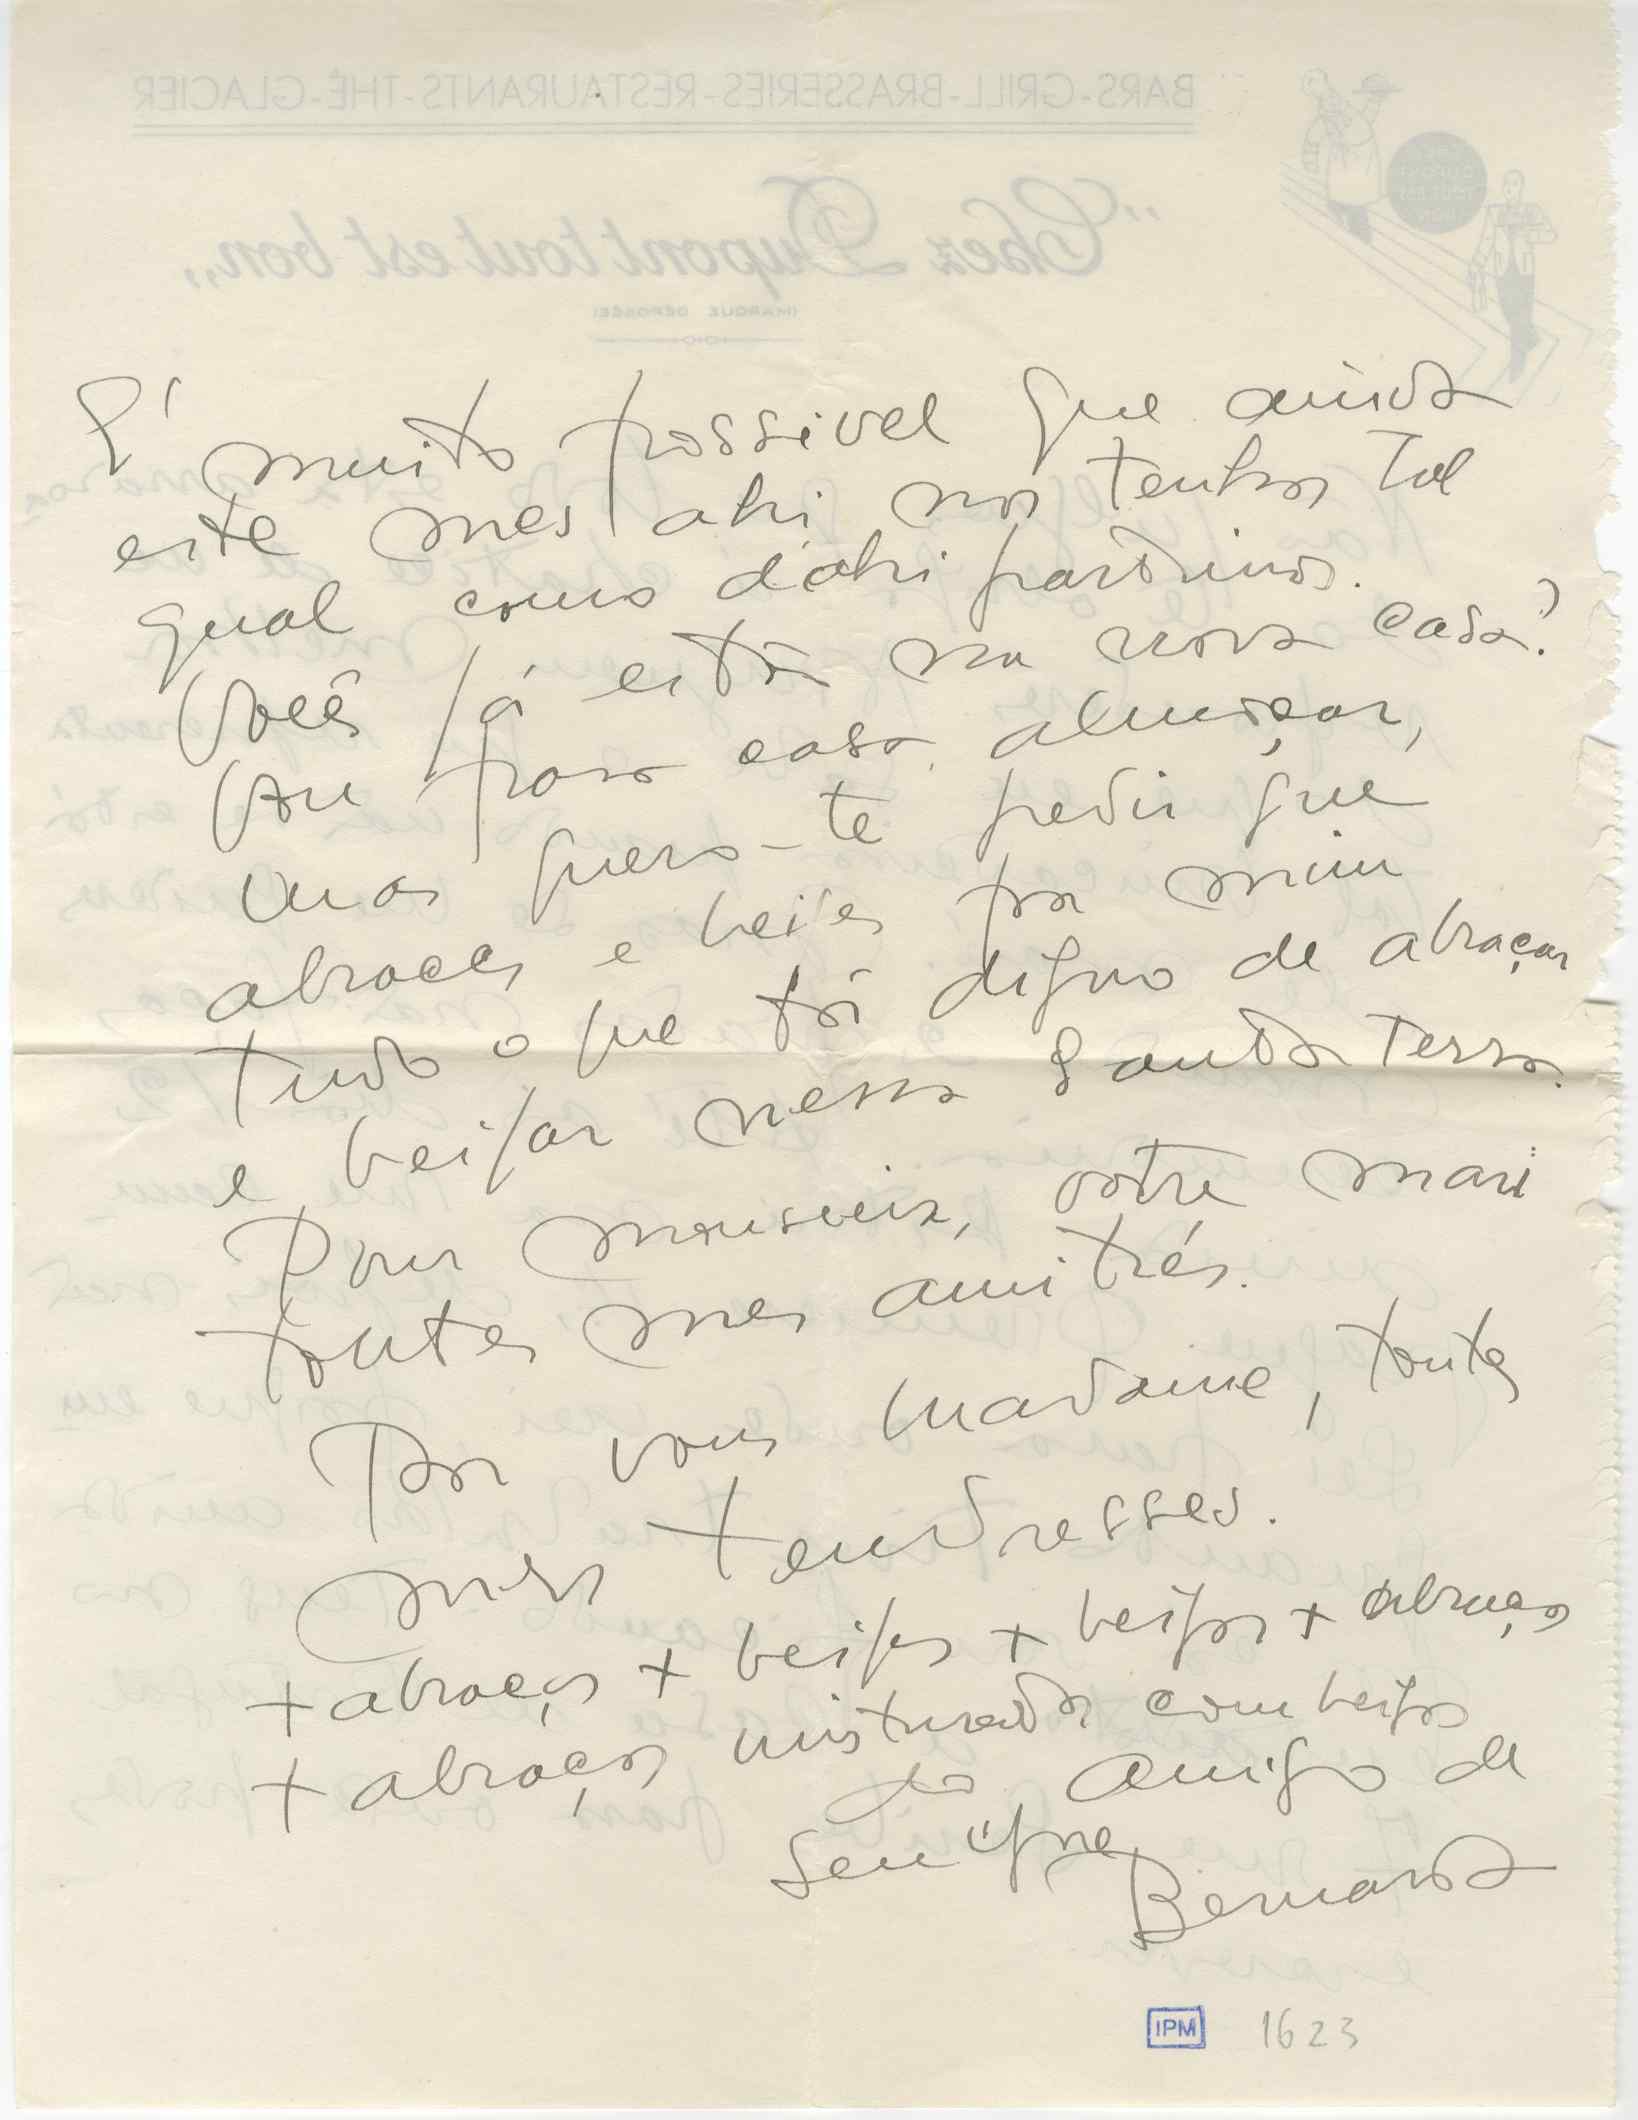 BARS-GRILL-BRASSERIES-RESTAURANTS-THÉ-GLACIER
"Chez Dupont tout est bon„
(MARQUE DÉPOSÉE)
E' muito possivel que ainda
este mes ahi nos tenhas tal
qual como d'ahi partimos.
Você já está na nova casa?
Vou para casa almoçar,
mas quero-te pedir que
abraces e beijes por mim
tudo o que fôr digno de abraçar
e beijar nessa santa terra.
Pour monsieur, votre mari
toutes mes amitiés.
Por vous madame, toutes
mes tendresses.
+ abraços + beijos + beijos + abraços
+ abraços misturados com beijos
do amigo de
sempre
Bernardo
IPM 1623